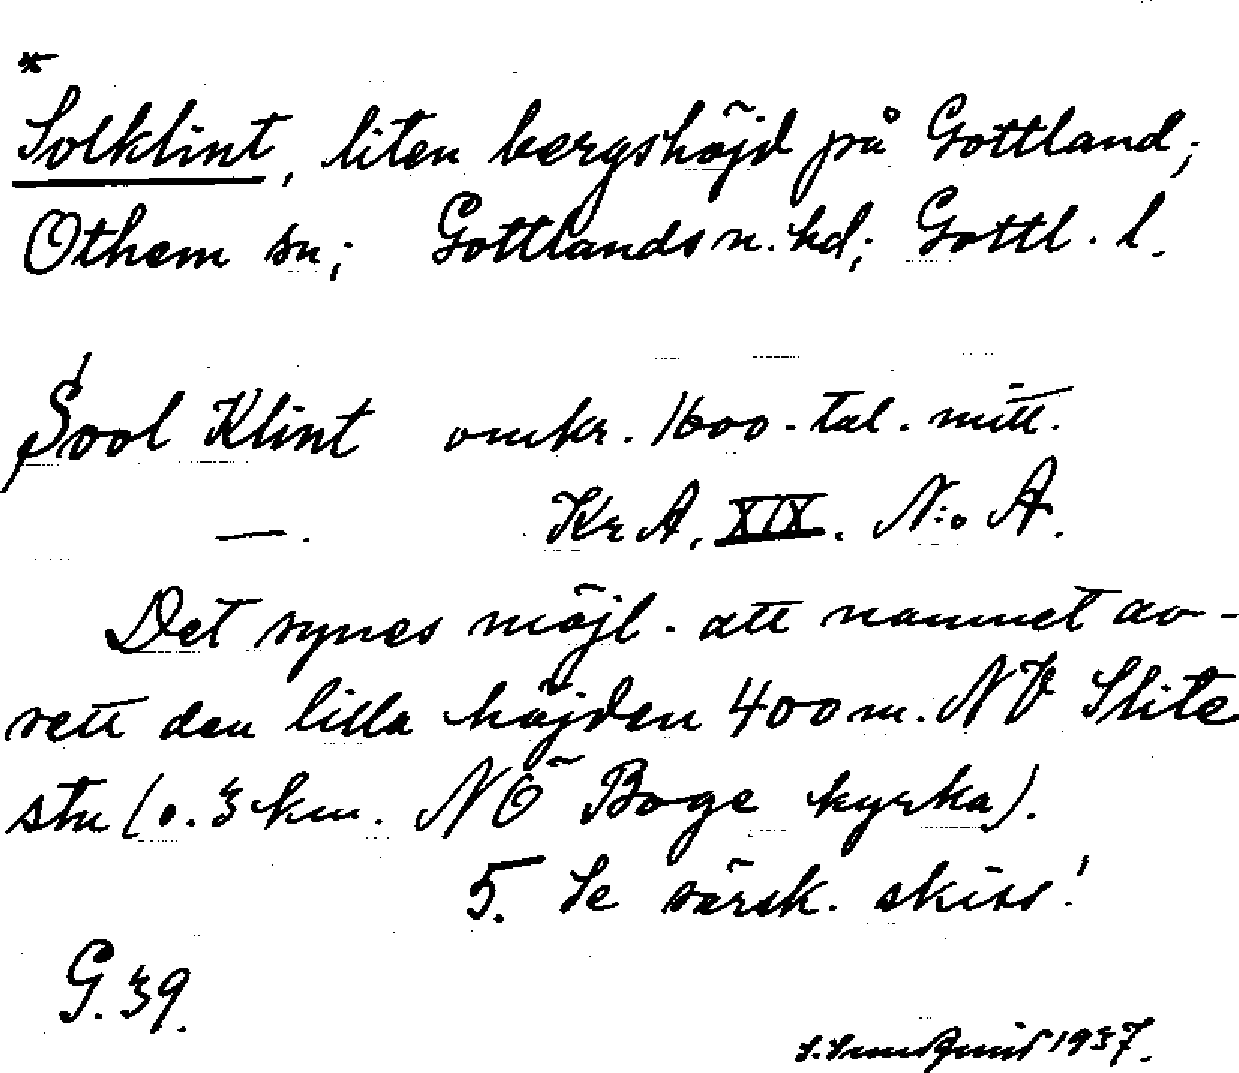 *
Solklint, liten bergshöjd på Gottland;
Othem sn; Gottlands n. hd; Gottl. l.
Sool Klint omkr. 1600-tal. mitt.
— . Kr A. XIX. N:o A.
Det synes möjl. att namnet av-
sett den lilla höjden 400 m. NV Slite
stn (o. 3 km. NÖ Boge kyrka).
5. Se särsk. skiss!
G. 39.
1937.